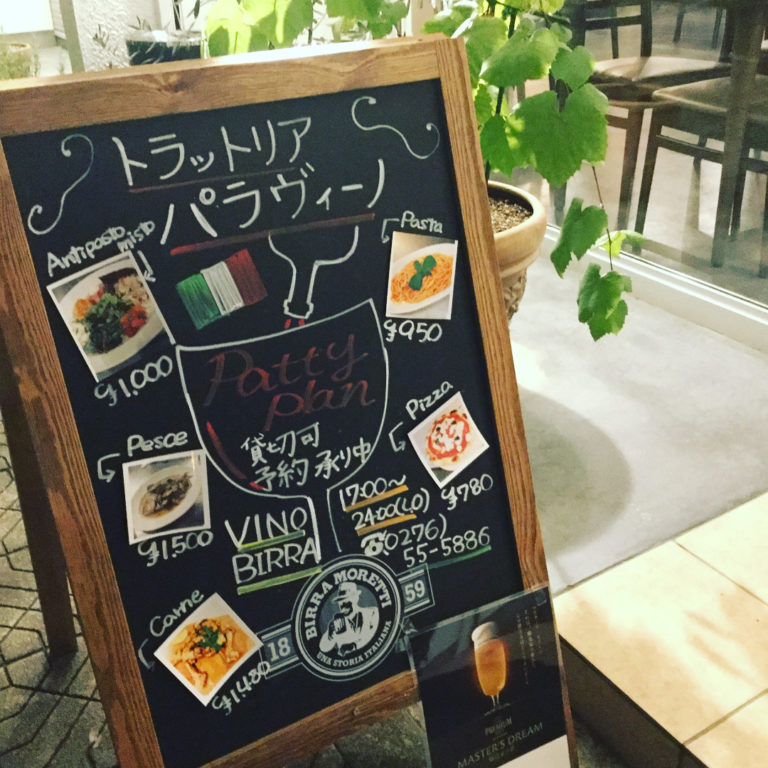 トラットリア
パラヴィーノ
Antiposto
misto
¥1,000
Pasta
¥950
Patty
plan
貸切可
予約承り中
Pesce
¥1,500
Pizza
¥780
VINO
BIRRA
17:00~
24:00(L.O)
☎(0276)
55-5886
Carne
¥1,480
18
BIRRA MORETTI
UNA STORIA ITALIANA
59
PREMIUM
MASTER'S DREAM